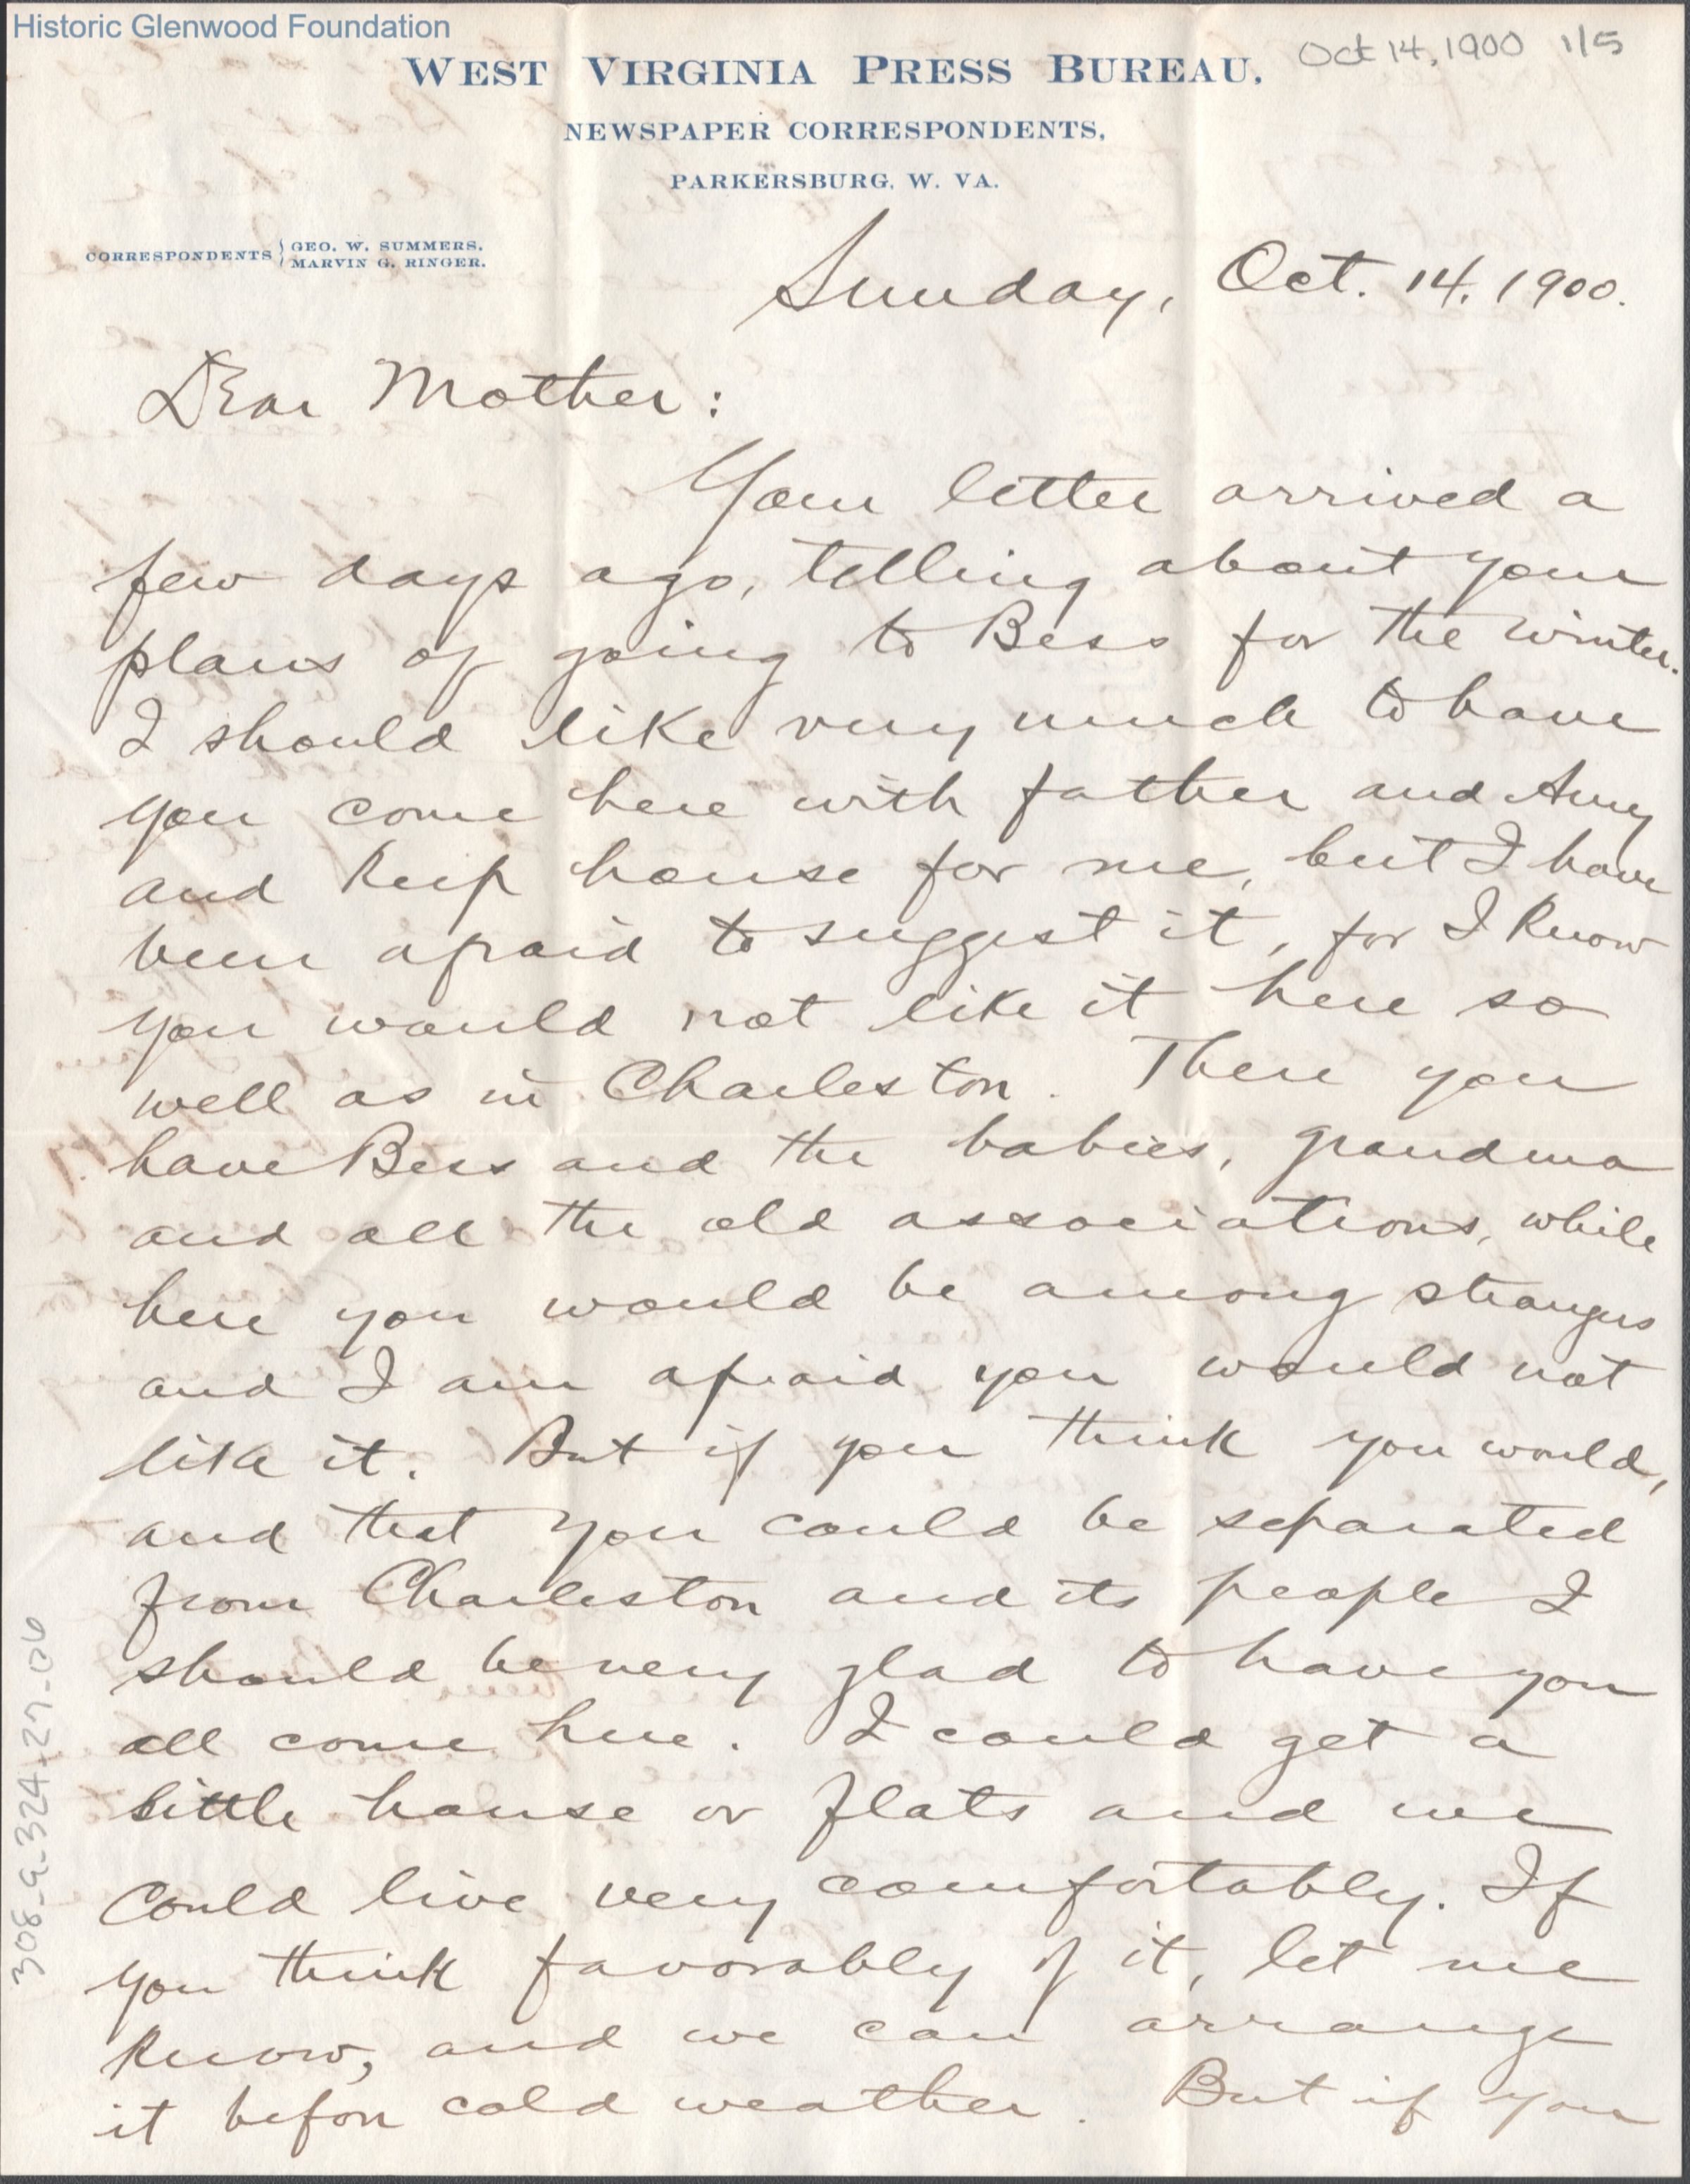 Historic Glenwood Foundation
Oct 14, 1900 1/5
WEST VIRGINIA PRESS BUREAU.
NEWSPAPER CORRESPONDENTS,
PARKERSBURG, W. VA.
CORRESPONDENTS { GEO. W. SUMMERS.
MARVIN G. RINGER.
Sunday, Oct. 14, 1900.
Dear Mother:
Your letter arrived a
few days ago, telling about your
plans of going to Bess for the winter.
I should like very much to have
you come here with father and Amy
and keep house for me, but I have
been afraid to suggest it, for I know
you would not like it here so
well as in Charleston. There you
have Bess and the babies, grandma
and all the old associations, while
here you would be among strangers
and I am afraid you would not
like it. But if you think you would,
and that you could be separated
from Charleston and its people I
should be very glad to have you
all come here. I could get a
little house or flats and we
could live very comfortably. If
you think favorably of it, let me
know, and we can arrange
it before cold weather. But if you
308-a-324-27-06